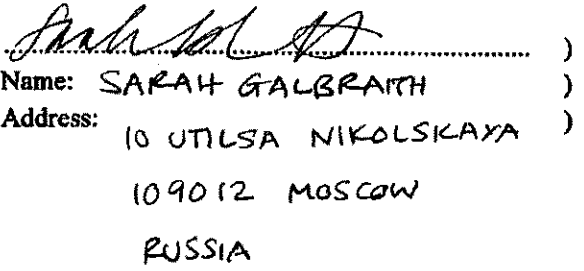 ........................................ )
Name: SARAH GALBRAITH )
Address: )
10 UTILSA NIKOLSKAYA
109012 MOSCOW
RUSSIA